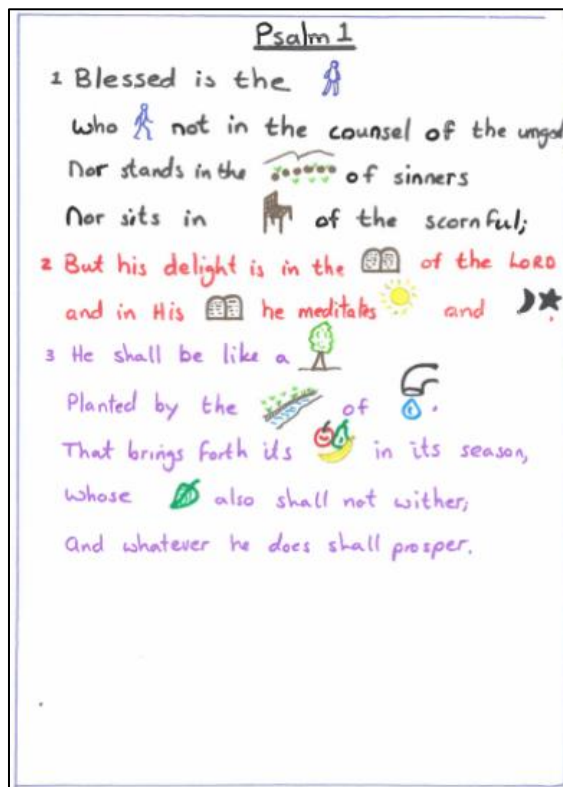 Psalm 1
1 Blessed is the
who not in the counsel of the ungod
Nor stands in the of sinners
Nor sits in of the scornful;
2 But his delight is in the of the LORD
and in His he meditates and .
3 He shall be like a
Planted by the of .
That brings forth its in its season,
whose also shall not wither;
And whatever he does shall prosper.